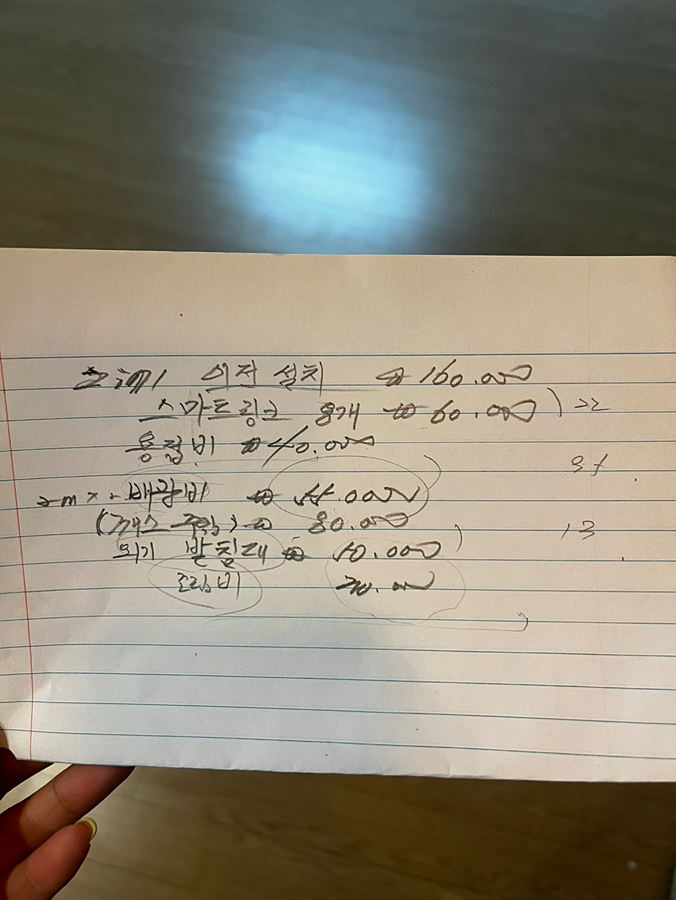 이전 설치 ₩ 160.000
스마트링크 8개 ₩ 60.000 ) 22
용접비 ₩ 40.000
2m x 배관비 ₩ 000
(가스 주입) ₩ 80.000 13
외기 받침대 ₩ 50.000
조립비 70.000